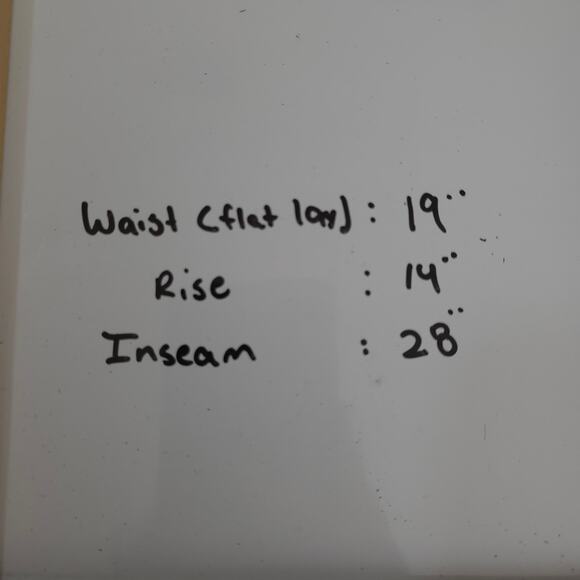 Waist (flat lay) : 19"
Rise : 14"
Inseam : 28"